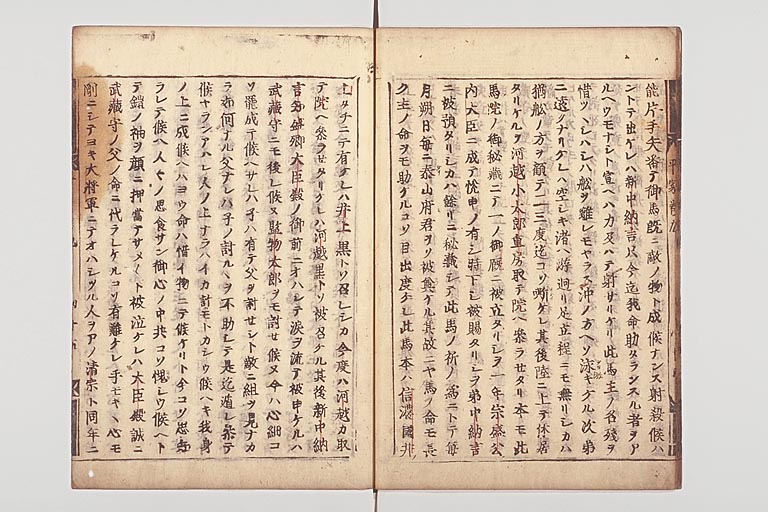 能片手矢番テ御馬既ニ敵ノ物ト成候ナンス射殺候ハ
ントテ出ケレハ新中納言只今迄我命助タランスル者ヲア
ルヘウモナシト宣ヘハ力及ハテ射サリケリ此馬主ノ名残ヲ
惜ツヽシハシハ船ヲ離レモヤラス沖ノ方ヘソ泳キケル次第
ニ遠ノナリケレハ空シキ渚ヘ游廻リ足立程ニモ無リシカハ
猶船ノ方ヲ顧テ二三度迄コソ嘶ケレ其後陸ニ上テ休居
タリケルヲ河越小太郎重房取テ院ヘ参ラセタリ本モ此
馬院ノ御秘蔵ニテ一ノ御厩ニ被立タリシヲ一年宗盛公
内大臣ニ成テ悦申ノ有シ時下シ被賜タリシヲ弟中納言
ニ被預タリシカハ餘リニ秘蔵シテ此馬ノ祈ノ為ニトテ毎
月朔日毎ニ泰山府君ヲソ被祭ケル其故ニヤ馬ノ命モ長
ク主ノ命ヲモ助ケルコソ目出度ケレ此馬本ハ信濃國井
上タチニテ有ケレハ井上黒トソ召レシカ今度ハ河越カ取
テ院ヘ参ラセタリケレハ河越黒トソ被召ケル其後新中納
言知盛卿大臣殿ノ御前ニオハシテ涙ヲ流テ被申ケルハ
武蔵守ニモ後レ候ヌ監物太郎ヲモ討セ候ヌ今ハ心細コ
ソ罷成テ候ヘサレハ子ハ有テ父ヲ討セシト敵ニ組ヲ見ナカ
ラ如何ナル父ナレハ子ノ討ルヽヲ不助シテ是迄遁レ参テ
候ヤランアハレ人ノ上ナラハイカ計モトカシウ候ヘキ我身
ノ上ニ成候ヘハヨウ命ハ惜イ物ニテ候ケリト今コソ思知
ラレテ候ヘ人々ノ思食サン御心ノ中共コソ愧シウ候ヘト
テ鎧ノ袖ヲ顔ニ押當テサメ〳〵ト被泣ケレハ大臣殿誠ニ
武蔵守ノ父ノ命ニ代ラレケルコソ有難ケレ手モキヽ心モ
剛ニシテヨキ大将軍ニテオハシツル人ヲアノ清宗ト同年ニ